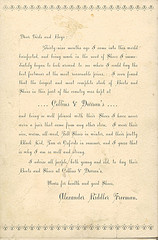 Dear Girls and Boys:
Thirty-nine months ago I came into this world
barefooted, and being weak in the rest of Shoes I immediately
began to look around to see where I could buy the
best footwear at the most reasonable prices. I soon found
that the largest and most complete stock of Boots and
Shoes in this part of the country was kept at
.... Collins & Dotson's ....
and being so well pleased with their Shoes I have never worn
a pair that came from any other store. I wear their
nice, warm, all-wool, Felt Shoes in winter, and their pretty
Black, Red, Tan or Oxfords in summer, and I guess that
is why I am so well and strong.
I advise all people, both young and old, to buy their
Boots and Shoes at Collins & Dotson's.
Yours for health and good Shoes,
Alexander Riddler Freeman.